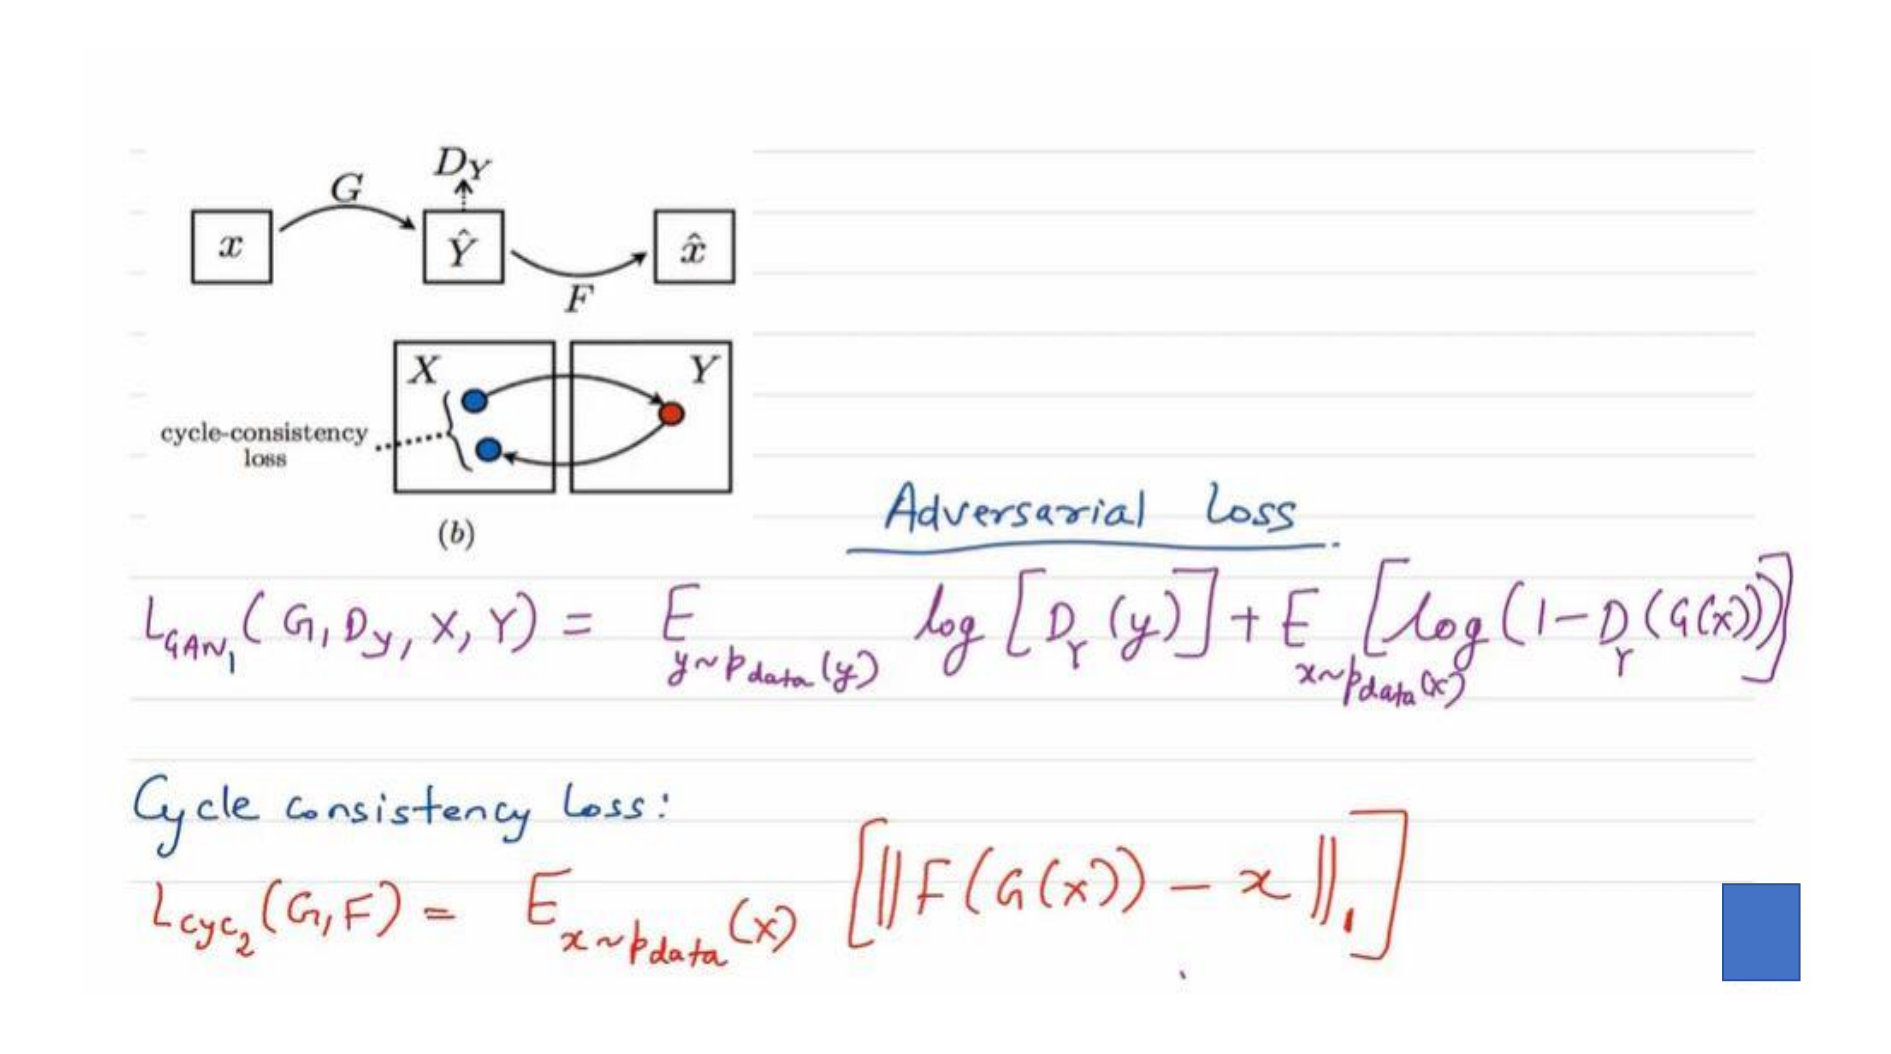 D_Y
G
x Ŷ x̂
F
X Y
cycle-consistency
loss
(b)
Adversarial Loss
L_GAN₁(G, D_y, X, Y) = E_y~p_data(y) log[D_Y(y)] + E_x~p_data(x) [log(1-D_Y(G(x)))]
Cycle consistency Loss:
L_cyc₂(G,F) = E_x~p_data(x) [||F(G(x)) - x||₁]